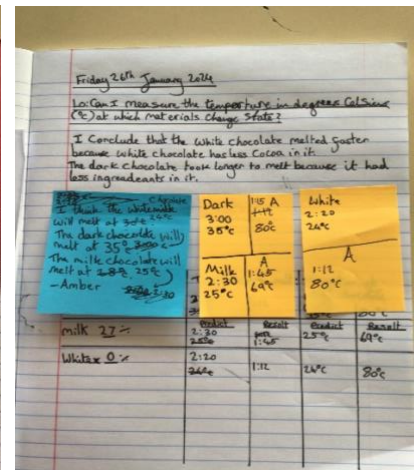 Friday 26th January 2024
Lo: Can I measure the temperture in degrees Celsius
(°c) at which materials change state?
I Conclude that the white chocolate melted faster
because white chocolate has less Cocoa in it.
The dark chocolate took longer to melt because it had
less ingreadeants in it.
I think the white
will melt at 24°c
The dark chocolate will
melt at 35°c
The milk chocolate will
melt at 25°c
-Amber
2:30
Dark
3:00
35°c
1:15 A
1:12
80c
Milk
2:30
25°c
A
1:45
69°c
White
2:20
24°c
A
1:12
80°c
Predict Result Predict Result
milk 27% 2:30 1:45 25°c 69°c
White 0% 2:20 1:12 24°c 80°c